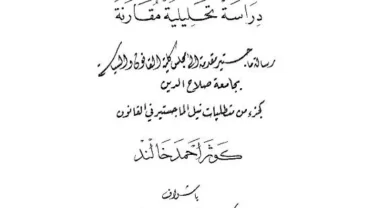 دِرَاسَةٌ تَحْلِيلِيَّةٌ مُقَارَنَةٌ
رسالة ماجستير مقدمة الى مجلس كلية القانون والسياسة
بجامعة صلاح الدين
كجزء من متطلبات نيل الماجستير في القانون
كَوثَر أحمَد خَالند
باشراف